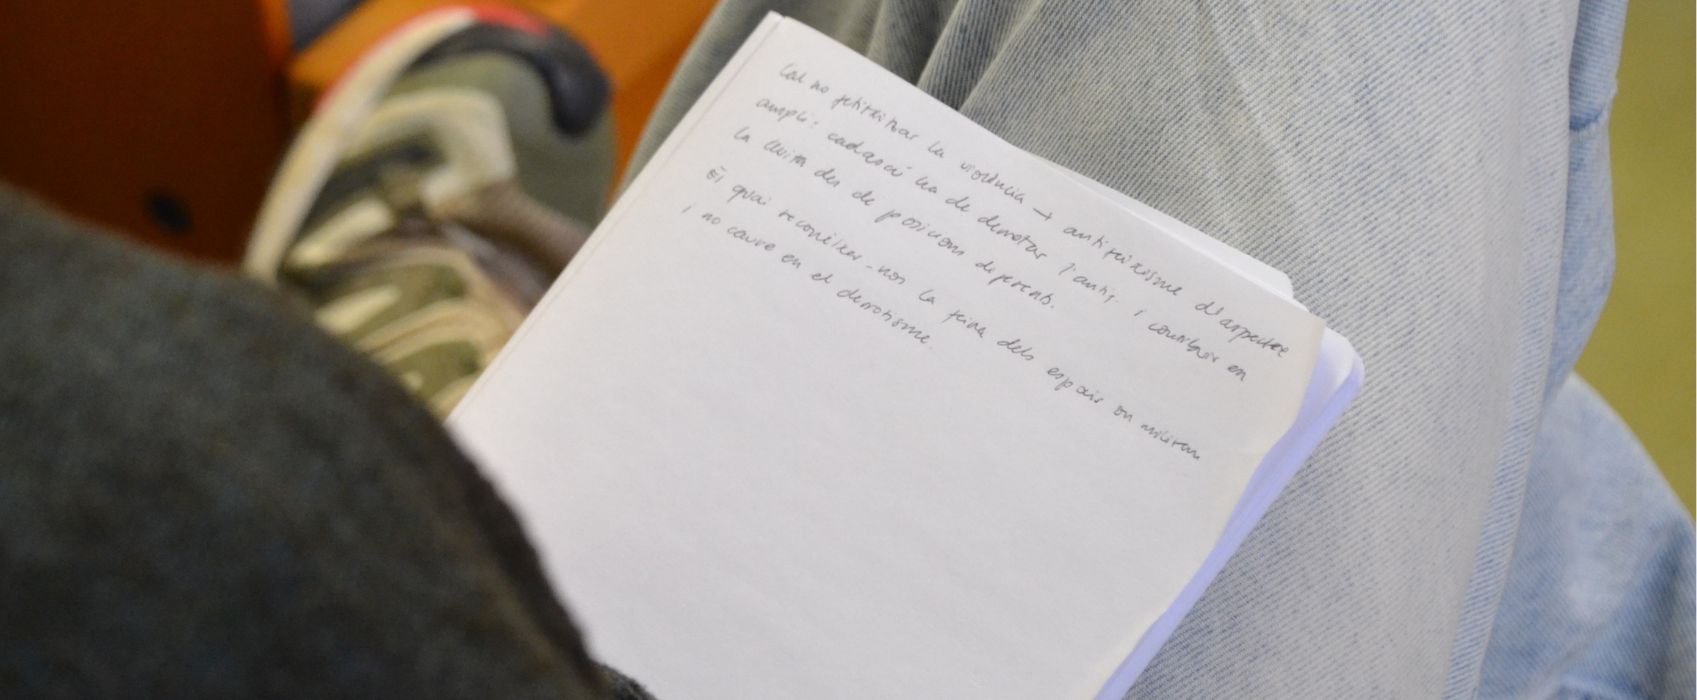 Cal no fetitxitzar la violència → antifeixisme d'espectre
ampli: cadascú ha de derrotar l'antif. i contribuir en
la lluita des de posicions diferents.
quai reconèixer-nos la feina dels espais on militam
i no caure en el derrotisme.